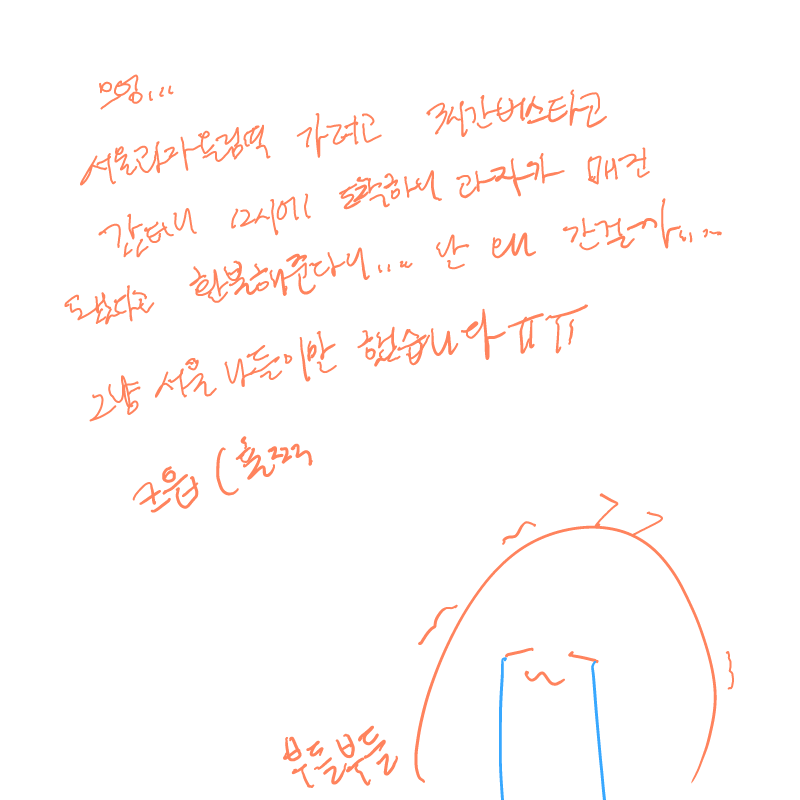 므엉...
서울과자올림픽 가려고 3시간버스타고
갔더니 12시에 도착하니 과자가 매진
됐다고 환불해준다니... 난 왜 간걸까...
그냥 서울 나들이만 했습니다ㅠㅠ
크읍 (훌쩍
부들부들